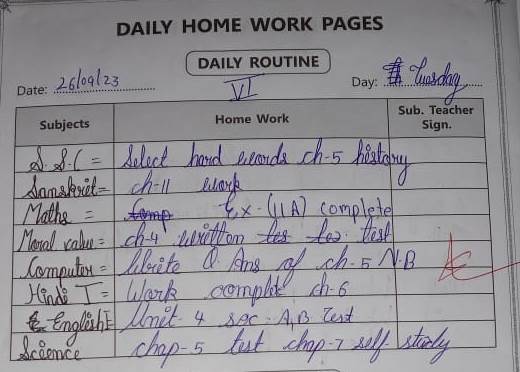 DAILY HOME WORK PAGES
DAILY ROUTINE
Date: 26/09/23 VI Day: Tuesday
Subjects Home Work Sub. Teacher Sign.
S.S.C = Select hard words ch-5 history
Sanskrit = ch-11 work
Maths = Comp Ex-(11A) complete
Moral value = ch-4 written tes tes test
Computer = Write Q. Ans of ch-5 N.B
Hindi I = Work complete ch-6
English I = Unit-4 sec-A, B Test
Science chap-5 test chap-7 self study